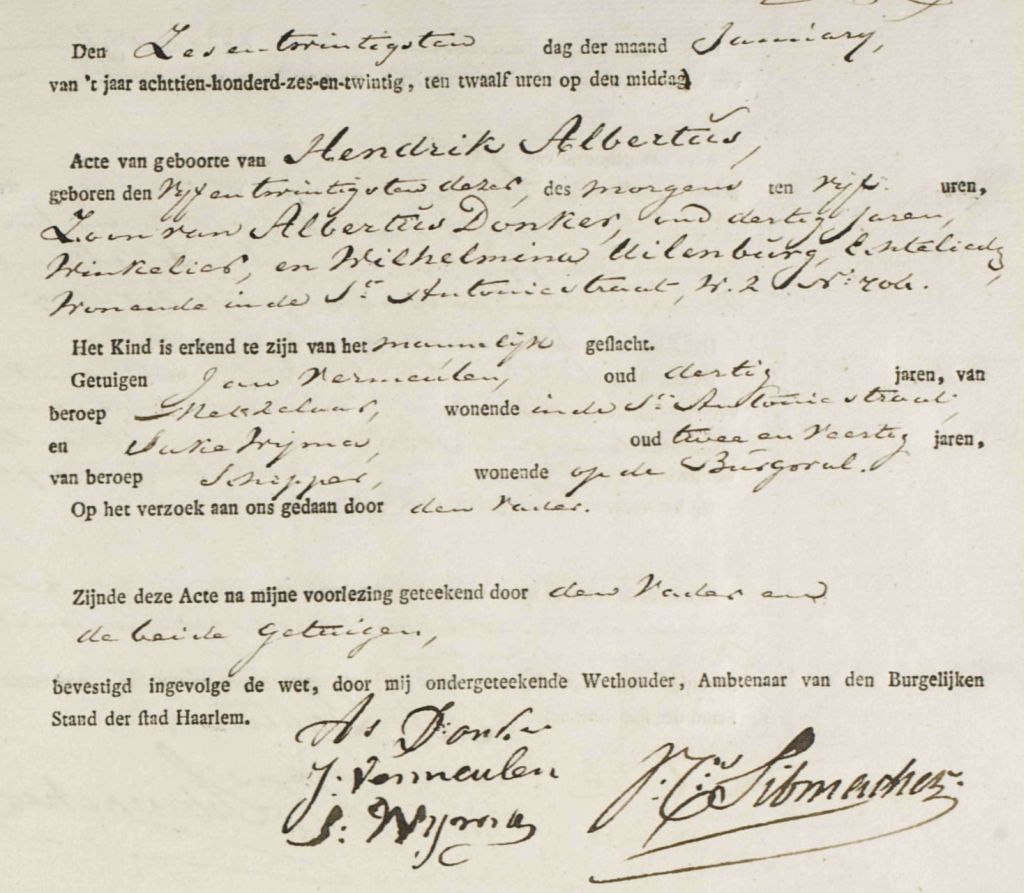 Den Zesentwintigsten dag der maand January,
van 't jaar achttien-honderd-zes-en-twintig, ten twaalf uren op den middag
Acte van geboorte van Hendrik Albertus,
geboren den Vyfentwintigsten dezer, des morgens ten vyf uren,
Zoon van Albertus Donker, oud dertig jaren,
Winkelier, en Wilhelmina Uilenburg, Echtelieden,
Wonende in de St. Antoniestraat, W. 2 No:
Het Kind is erkend te zijn van het mannelyk geslacht.
Getuigen Jan Vermeulen, oud dertig jaren, van
beroep Metzelaar, wonende in de St. Antoniestraat,
en Wyma, oud twee en Veertig jaren,
van beroep Schipper, wonende op de Burgwal.
Op het verzoek aan ons gedaan door den Vader.
Zijnde deze Acte na mijne voorlezing geteekend door den Vader en
de beide Getuigen,
bevestigd ingevolge de wet, door mij ondergeteekende Wethouder, Ambtenaar van den Burgelijken
Stand der stad Haarlem.
As Donker
J. Vermeulen
S: Wyma
Sibmacher